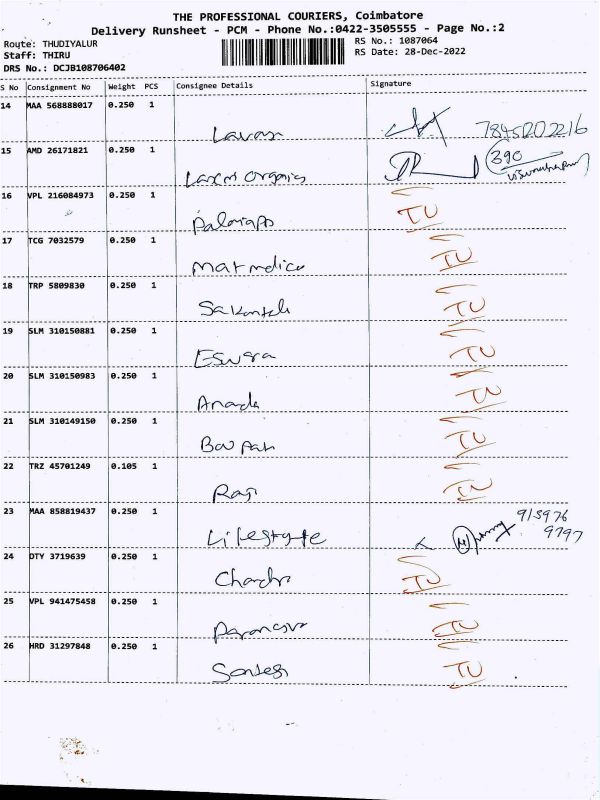 THE PROFESSIONAL COURIERS, Coimbatore
Delivery Runsheet - PCM - Phone No.:0422-3505555 - Page No.:2
Route: THUDIYALUR RS No.: 1087064
Staff: THIRU RS Date: 28-Dec-2022
DRS No.: DCJB108706402
S No Consignment No Weight PCS Consignee Details Signature
14 MAA 568888017 0.250 1
7845202216
15 AMD 26171821 0.250 1
390
Laxmi Organics
16 VPL 216084973 0.250 1
TU
17 TCG 7032579 0.250 1
TU
18 TRP 5809830 0.250 1
TU
19 SLM 310150881 0.250 1
Eswra TU
20 SLM 310150983 0.250 1
TU
21 SLM 310149150 0.250 1
TU
22 TRZ 45701249 0.105 1
Raji TU
23 MAA 858819437 0.250 1
Lifestyle 915976
9797
24 DTY 3719639 0.250 1
Chandra TU
25 VPL 941475458 0.250 1
TU
26 HRD 31297848 0.250 1
TU